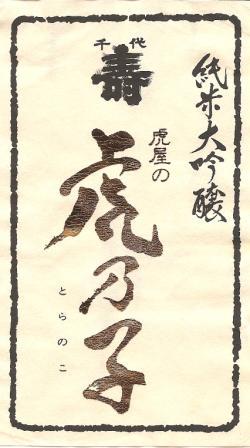 純米大吟醸
千代
寿
虎屋の
虎乃子
とらのこ